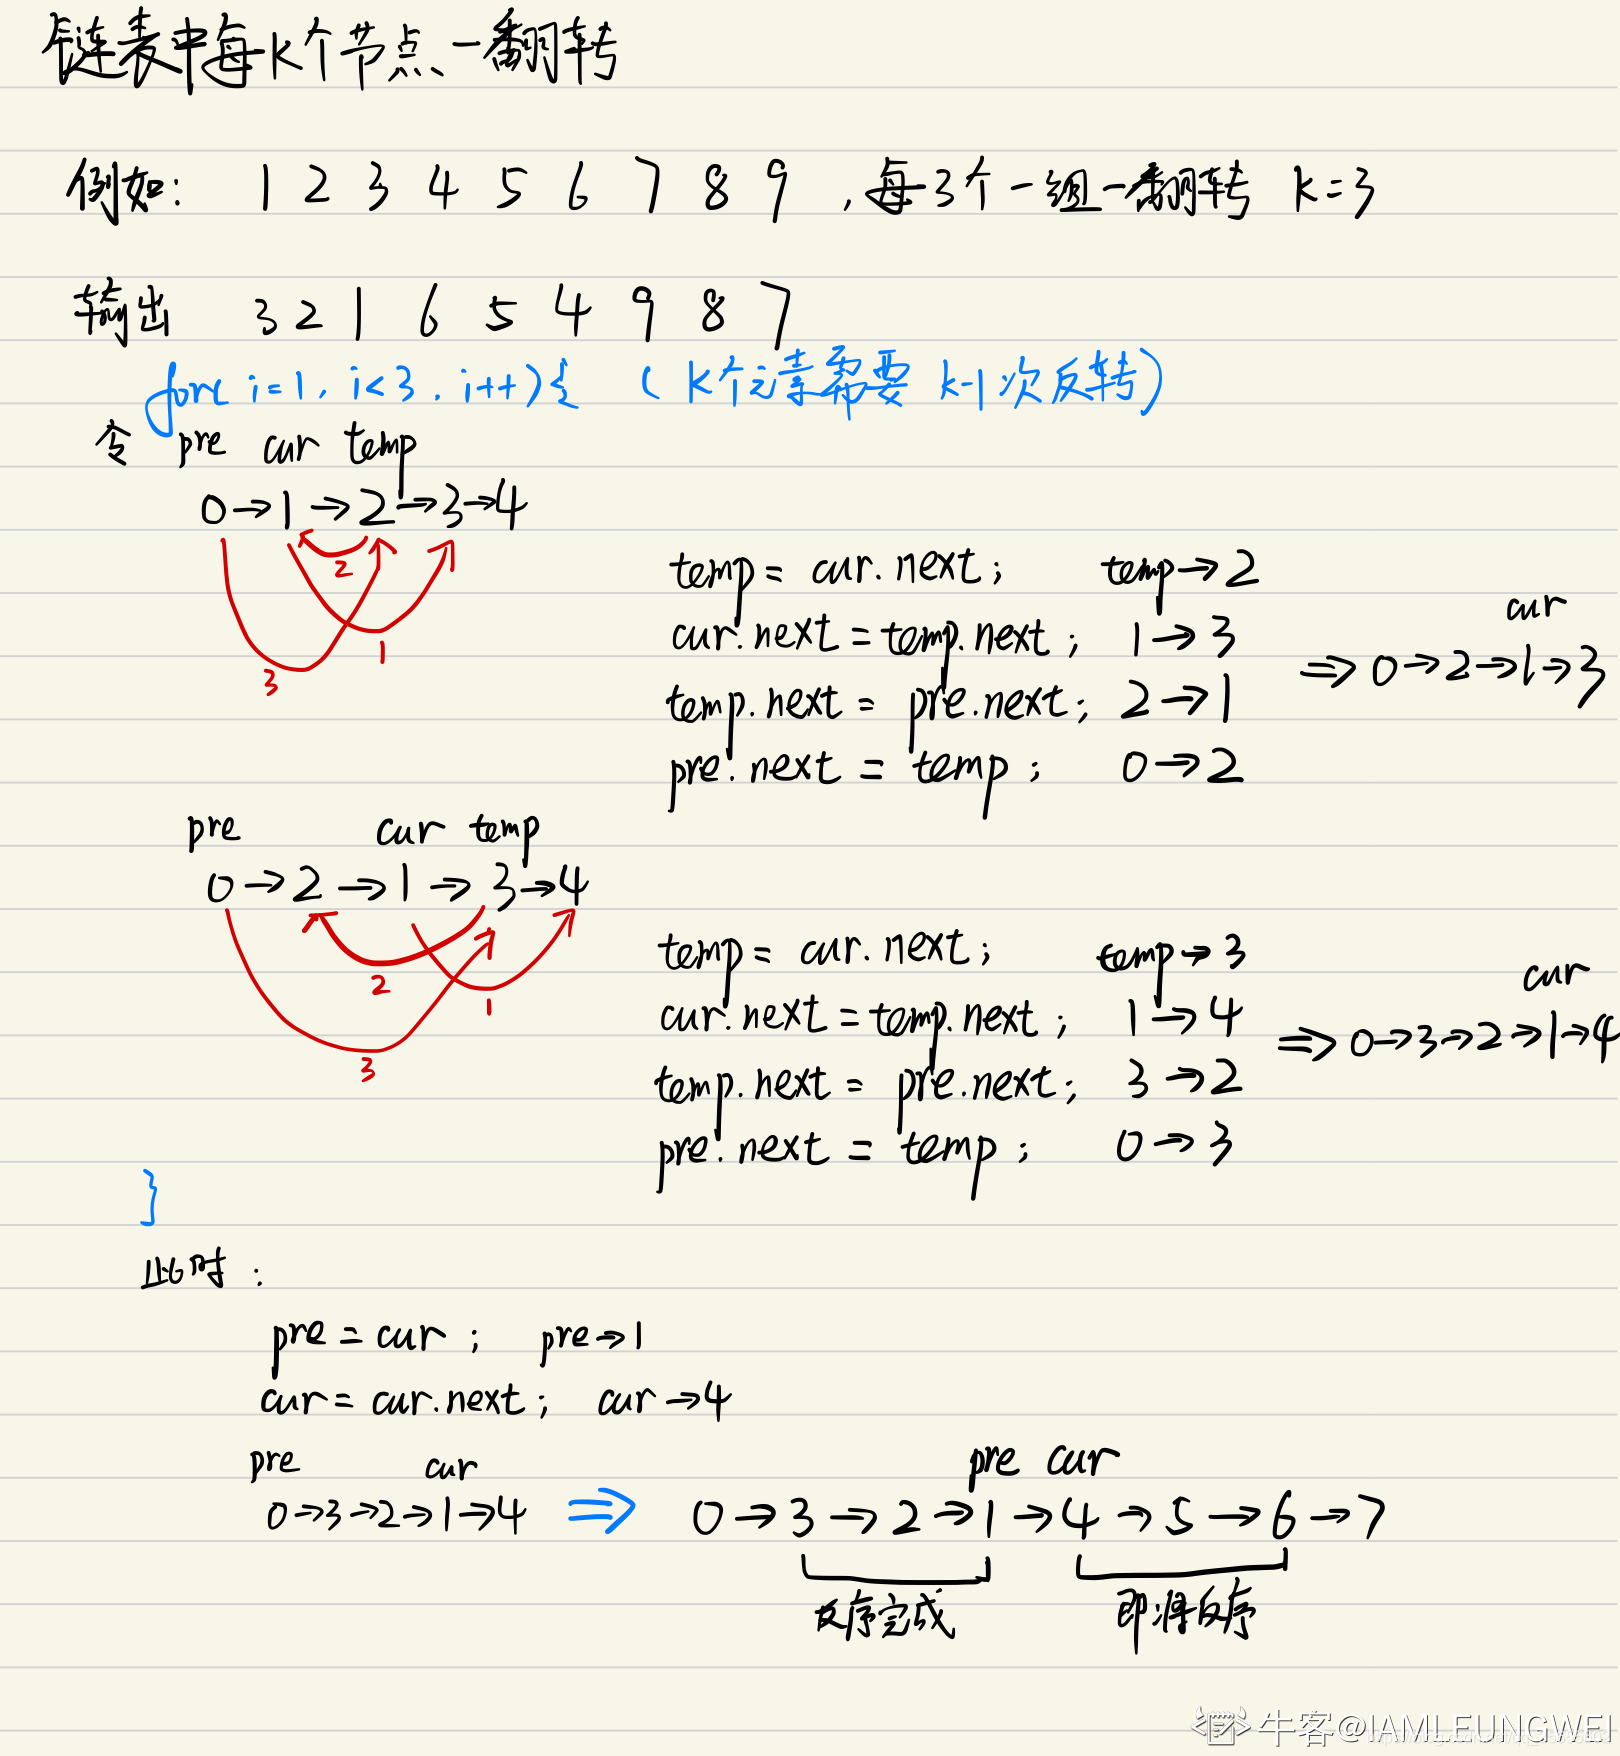 链表中每K个节点一翻转
例如: 1 2 3 4 5 6 7 8 9 , 每3个一组一翻转 K=3
输出 3 2 1 6 5 4 9 8 7
for( i=1, i<3, i++){ ( K个元素需要 k-1次反转)
令 pre cur temp
0→1→2→3→4
2
1
3
temp = cur.next; temp→2
cur.next = temp.next; 1→3
temp.next = pre.next; 2→1
pre.next = temp; 0→2
cur
⇒ 0→2→1→3
pre cur temp
0→2→1→3→4
2
1
3
temp = cur.next; temp→3
cur.next = temp.next; 1→4
temp.next = pre.next; 3→2
pre.next = temp; 0→3
cur
⇒ 0→3→2→1→4
}
此时:
pre = cur; pre→1
cur = cur.next; cur→4
pre cur
0→3→2→1→4 ⇒
pre cur
0→3→2→1→4→5→6→7
反序完成 即将反序
牛客@IAMLEUNGWEI